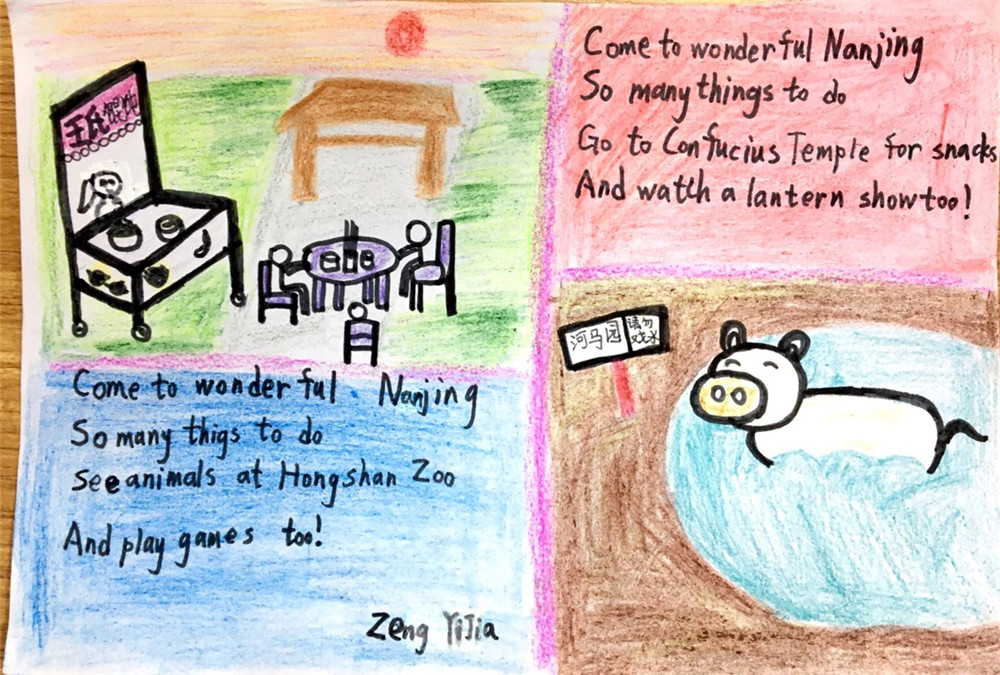 王氏馄饨
Come to wonderful Nanjing
So many things to do
Go to Confucius Temple for snacks
And watch a lantern show too!
Come to wonderful Nanjing
So many thigs to do
see animals at Hongshan Zoo
And play games too!
Zeng YiJia
河马园
请勿
戏水